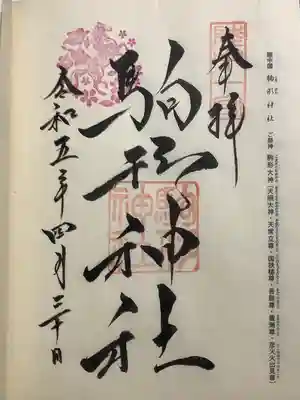 陸中國 駒形神社 ご祭神 駒形大神（天照大神・天常立尊・国狭槌尊・吾勝尊・置瀬尊・彦火火出見尊）
奉拝
駒形神社
令和五年四月三十日